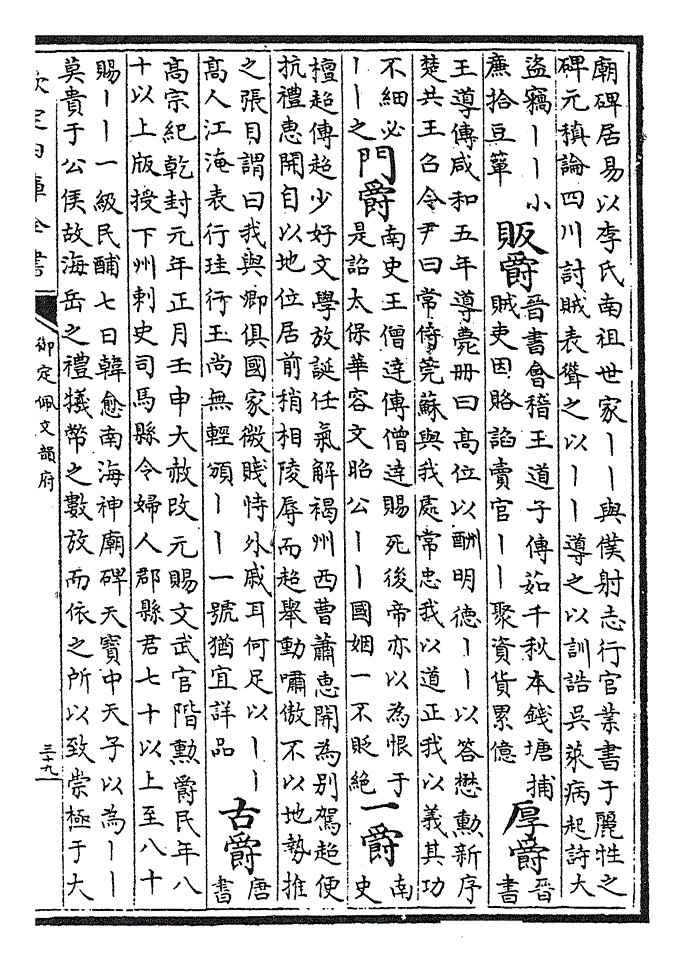 廟碑居易以李氏南祖世家丨丨與僕射志行官業書于麗牲之
碑元稹論四川討賊表聳之以丨丨導之以訓誥吳萊病起詩大
盜竊丨丨小
廉拾豆簞
販爵
晉書會稽王道子傳茹千秋本錢塘捕
賊吏因賂諂賣官丨丨聚資貨累億
厚爵
晉
書
王導傳咸和五年導薨冊曰高位以酬明德丨丨以答懋勳新序
楚共王召令尹曰常侍莞蘇與我處常忠我以道正我以義其功
不細必
丨丨之
門爵
南史王僧達傳僧達賜死後帝亦以為恨于
是詔太保華容文昭公丨丨國姻一不貶絕
一爵
南
史
檀超傳超少好文學放誕任氣解褐州西曹蕭惠開為別駕超便
抗禮惠開自以地位居前稍相陵辱而超舉動嘯傲不以地勢推
之張目謂曰我與卿俱國家微賤時外戚耳何足以丨丨
高人江淹表行珪行玉尚無輕頒丨丨一號猶宜詳品
古爵
唐
書
高宗紀乾封元年正月壬申大赦改元賜文武官階勳爵民年八
十以上版授下州刺史司馬縣令婦人郡縣君七十以上至八十
賜丨丨一級民酺七日韓愈南海神廟碑天寶中天子以為丨丨
莫貴于公侯故海岳之禮犧幣之數放而依之所以致崇極于大
欽定四庫全書
御定佩文韻府
三十九